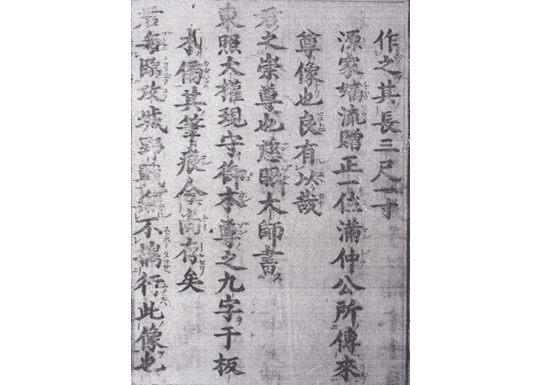 作之其長三尺一寸
源家嫡流贈正一位滿仲公所傳來
尊像也良有以哉
君之崇尊也慈眼大師書ス
東照大權現守御本尊之九字于板
其筆痕今尚存矣
君每臨攻城野戰無不携行此像也